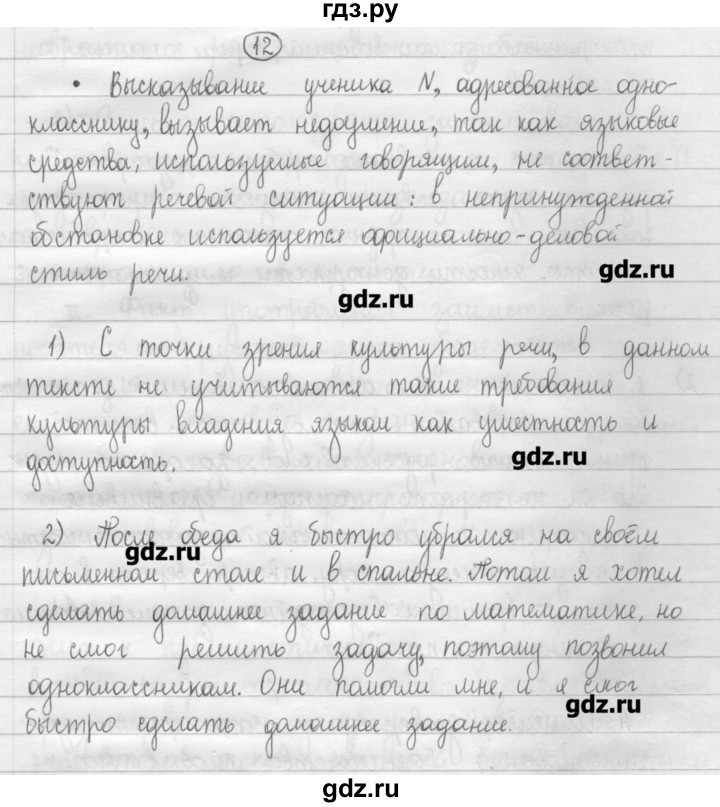 гдз.ру
12
• Высказывание ученика N, адресованное одно-
класснику, вызывает недоумение, так как языковые
средства, используемые говорящим, не соответ-
ствуют речевой ситуации: в непринужденной
обстановке используется официально-деловой
стиль речи.
gdz.ru
gdz.ru
1) С точки зрения культуры речи, в данном
тексте не учитываются такие требования
культуры владения языком как уместность и
доступность.
gdz.ru
2) После обеда я быстро убрался на своём
gdz.ru
письменном столе и в спальне. Потом я хотел
сделать домашнее задание по математике, но
не смог решить задачу, поэтому позвонил
одноклассникам. Они помогли мне, и я смог
gdz.ru
быстро сделать домашнее задание.
gdz.ru